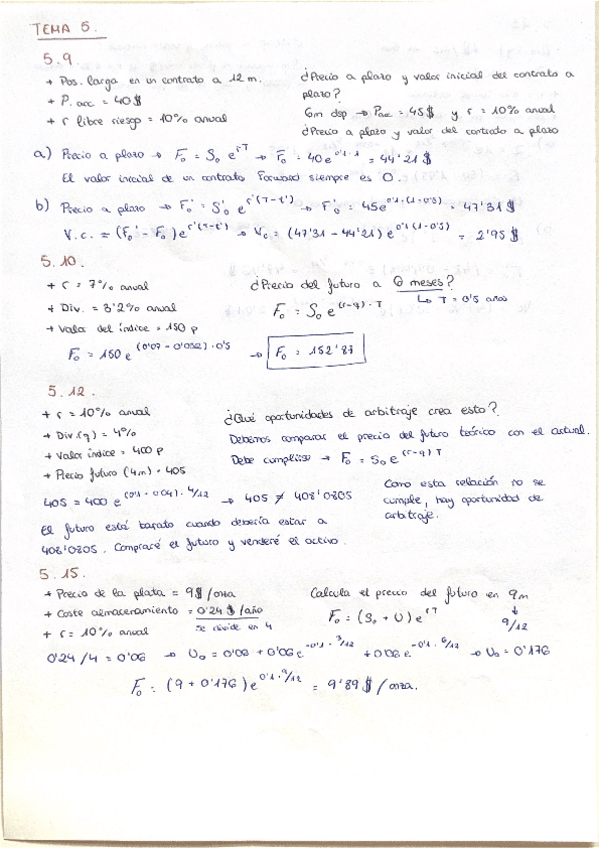 TEMA 5.
5.9.
+ Pos. larga en un contrato a 12 m.
+ P. acc = 40$
+ r libre riesgo = 10% anual
¿Precio a plazo y valor inicial del contrato a
plazo?
6m dsp → Pac = 45$ y r = 10% anual
¿Precio a plazo y valor del contrato a plazo
a) Precio a plazo → F₀ = S₀ e^(rT) → F₀ = 40e^(0'1·1) = 44'21$
El valor inicial de un contrato Forward siempre es 0.
b) Precio a plazo → F₀' = S₀' e^(r'(T-t')) → F'₀ = 45e^(0'1·(1-0'5)) = 47'31$
V.C. = (F₀' - F₀)e^(r'(T-t')) → Vc = (47'31 - 44'21)e^(0'1(1-0'5)) = 2'95$
5.10.
+ r = 7% anual
+ Div. = 3'2% anual
+ Valor del índice = 150 p
¿Precio del futuro a 6 meses?
↳ T = 0'5 años
F₀ = S₀ e^((r-q)·T)
F₀ = 150 e^((0'07 - 0'032)·0'5) → F₀ = 152'87
5.12.
+ r = 10% anual
+ Div.(q) = 4%
+ Valor índice = 400 p
+ Precio futuro (4m) = 405
¿Qué oportunidades de arbitraje crea esto?
Debemos comparar el precio del futuro teórico con el actual.
Debe cumplirse → F₀ = S₀ e^((r-q)T)
405 = 400 e^((0'1 - 0'04)·4/12) → 405 ≠ 408'0805
Como esta relación no se
cumple, hay oportunidad de
arbitraje.
El futuro está barato cuando debería estar a
408'0805. Compraré el futuro y venderé el activo.
5.15.
+ Precio de la plata = 9$/onza
+ Coste almacenamiento = 0'24 $/año
se divide en 4
+ r = 10% anual
Calcula el precio del futuro en 9m
↓
9/12
F₀ = (S₀ + U)e^(rT)
0'24/4 = 0'06 → U₀ = 0'06 + 0'06e^(-0'1·3/12) + 0'06e^(-0'1·6/12) → U₀ = 0'176
F₀ = (9 + 0'176)e^(0'1·9/12) = 9'89$/onza.